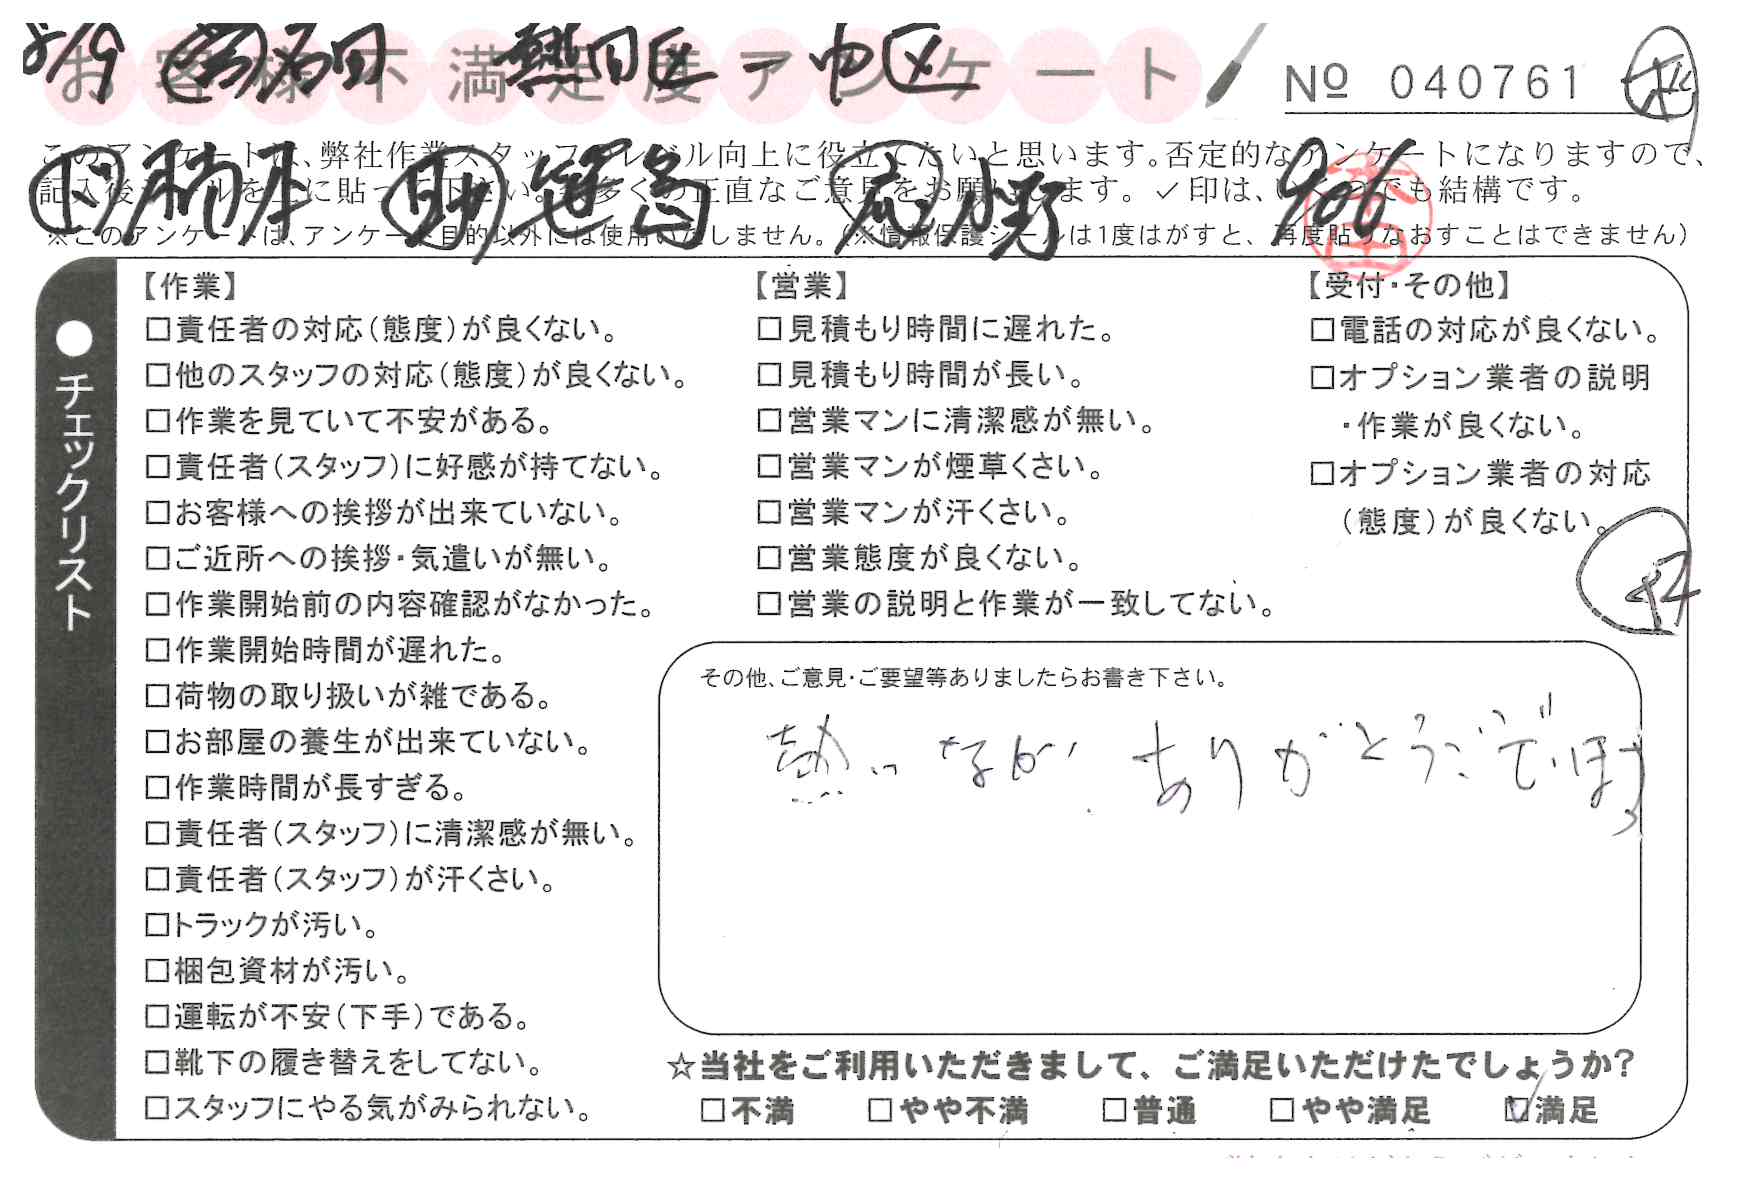 8/19 熱田区→中区
お客様不満足度アンケート
No 040761
このアンケートは、弊社作業スタッフのレベル向上に役立てたいと思います。否定的なアンケートになりますので、
記入後シールを上に貼って下さい。数多くの正直なご意見をお願いします。✓印は、いくつでも結構です。
※このアンケートは、アンケート目的以外には使用いたしません。(※情報保護シールは1度はがすと、再度貼りなおすことはできません)
●チェックリスト
【作業】
□責任者の対応(態度)が良くない。
□他のスタッフの対応(態度)が良くない。
□作業を見ていて不安がある。
□責任者(スタッフ)に好感が持てない。
□お客様への挨拶が出来ていない。
□ご近所への挨拶・気遣いが無い。
□作業開始前の内容確認がなかった。
□作業開始時間が遅れた。
□荷物の取り扱いが雑である。
□お部屋の養生が出来ていない。
□作業時間が長すぎる。
□責任者(スタッフ)に清潔感が無い。
□責任者(スタッフ)が汗くさい。
□トラックが汚い。
□梱包資材が汚い。
□運転が不安(下手)である。
□靴下の履き替えをしてない。
□スタッフにやる気がみられない。
【営業】
□見積もり時間に遅れた。
□見積もり時間が長い。
□営業マンに清潔感が無い。
□営業マンが煙草くさい。
□営業マンが汗くさい。
□営業態度が良くない。
□営業の説明と作業が一致してない。
【受付・その他】
□電話の対応が良くない。
□オプション業者の説明
・作業が良くない。
□オプション業者の対応
(態度)が良くない。
その他、ご意見・ご要望等ありましたらお書き下さい。
ありがとうござい
☆当社をご利用いただきまして、ご満足いただけたでしょうか?
□不満 □やや不満 □普通 □やや満足 ☑満足